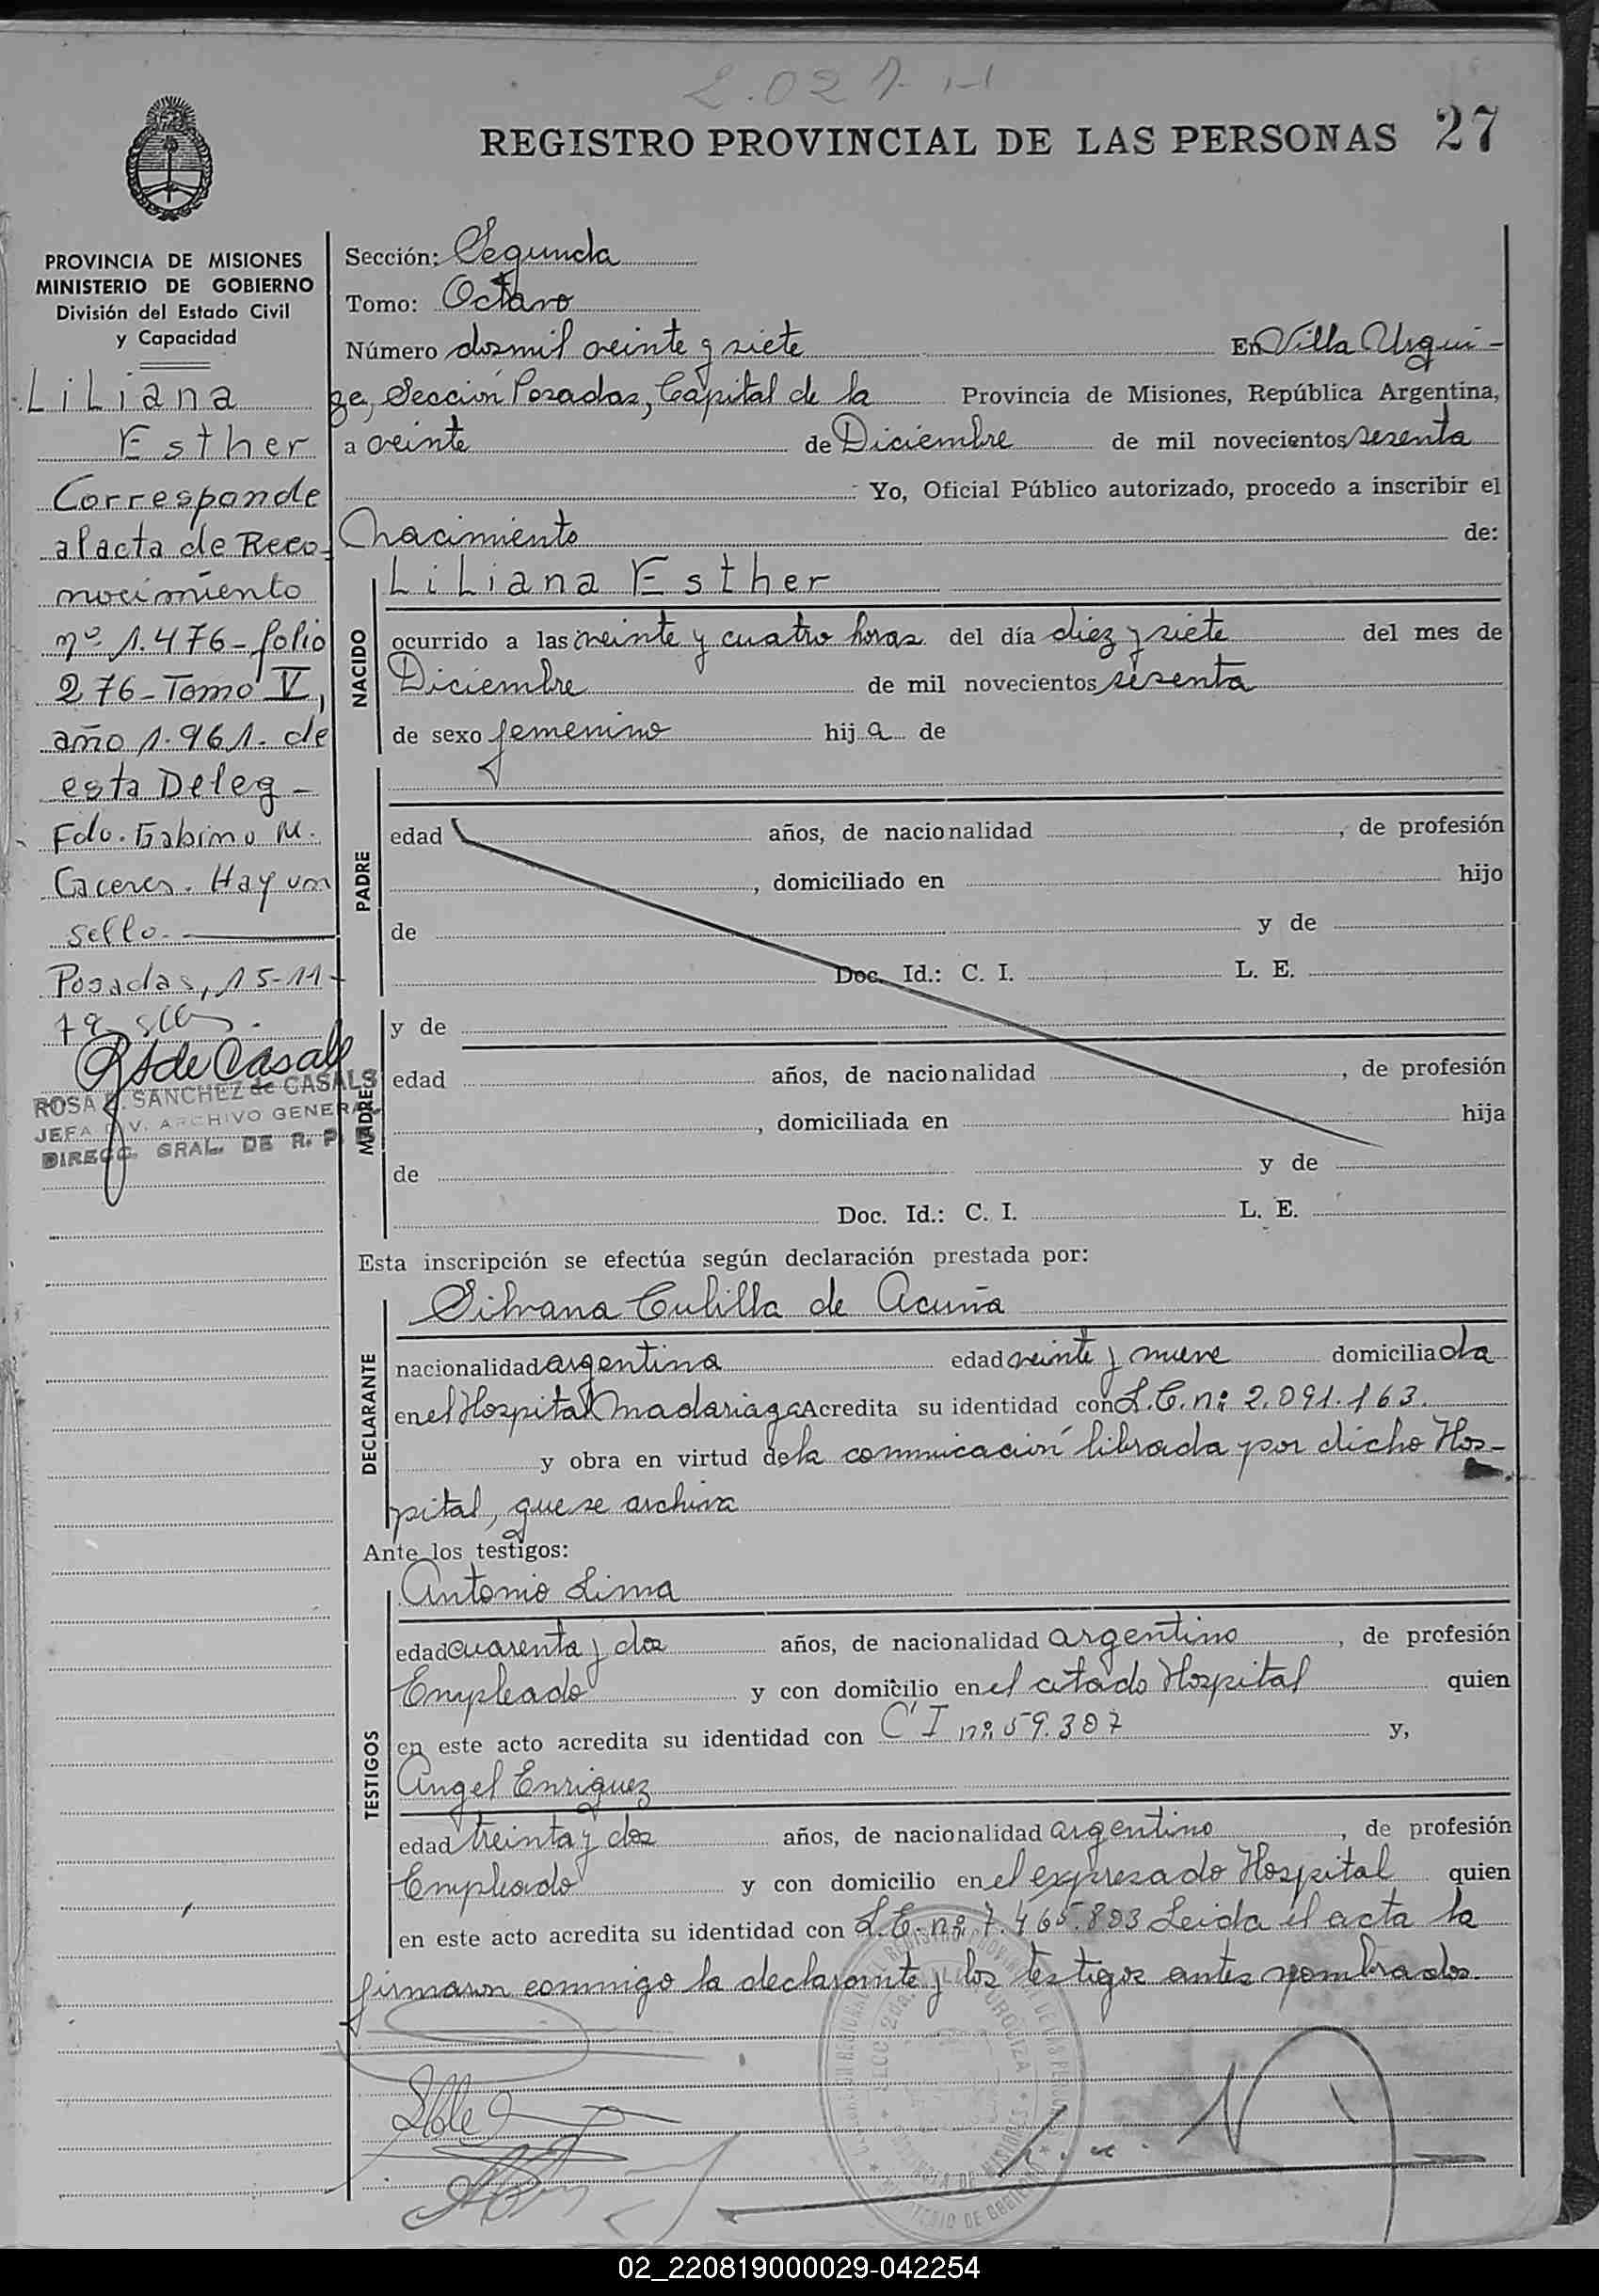 2.027
REGISTRO PROVINCIAL DE LAS PERSONAS 27
PROVINCIA DE MISIONES
MINISTERIO DE GOBIERNO
División del Estado Civil
y Capacidad
Liliana
Esther
Corresponde
al acta de Reco-
nocimiento
nº 1.476 - folio
276 - Tomo V,
año 1.961. de
esta Deleg -
Fdo. Gabino M.
Caceres. Hay un
sello.
Posadas, 15-11-
RS de Casals
ROSA SANCHEZ de CASALS
JEFA DIV. ARCHIVO GENERAL
DIRECC. GRAL. DE R. P.
Sección: Segunda
Tomo: Octavo
Número dosmil veinte y siete En Villa Urqui-
za, Sección Posadas, Capital de la Provincia de Misiones, República Argentina,
a veinte de Diciembre de mil novecientos sesenta
Yo, Oficial Público autorizado, procedo a inscribir el
Nacimiento de:
NACIDO
Liliana Esther
ocurrido a las veinte y cuatro horas del día diez y siete del mes de
Diciembre de mil novecientos sesenta
de sexo femenino hija de
PADRE
edad años, de nacionalidad , de profesión
, domiciliado en hijo
de y de
Doc. Id.: C. I. L. E.
MADRE
y de
edad años, de nacionalidad , de profesión
, domiciliada en hija
de y de
Doc. Id.: C. I. L. E.
Esta inscripción se efectúa según declaración prestada por:
DECLARANTE
Silvana Cubilla de Acuña
nacionalidad argentina edad veinte y nueve domiciliada
en el Hospital Madariaga Acredita su identidad con L.C. nº 2.091.163.
y obra en virtud de la comunicación librada por dicho Hos-
pital, que se archiva
Ante los testigos:
TESTIGOS
Antonio Lima
edad cuarenta y dos años, de nacionalidad argentino , de profesión
Empleado y con domicilio en el citado Hospital quien
en este acto acredita su identidad con C I nº 59.307 y,
Angel Enriquez
edad treinta y dos años, de nacionalidad argentino , de profesión
Empleado y con domicilio en el expresado Hospital quien
en este acto acredita su identidad con L.E. nº 7.465.803 Leida el acta la
firmaron conmigo la declarante y los testigos antes nombrados.
02_220819000029-042254